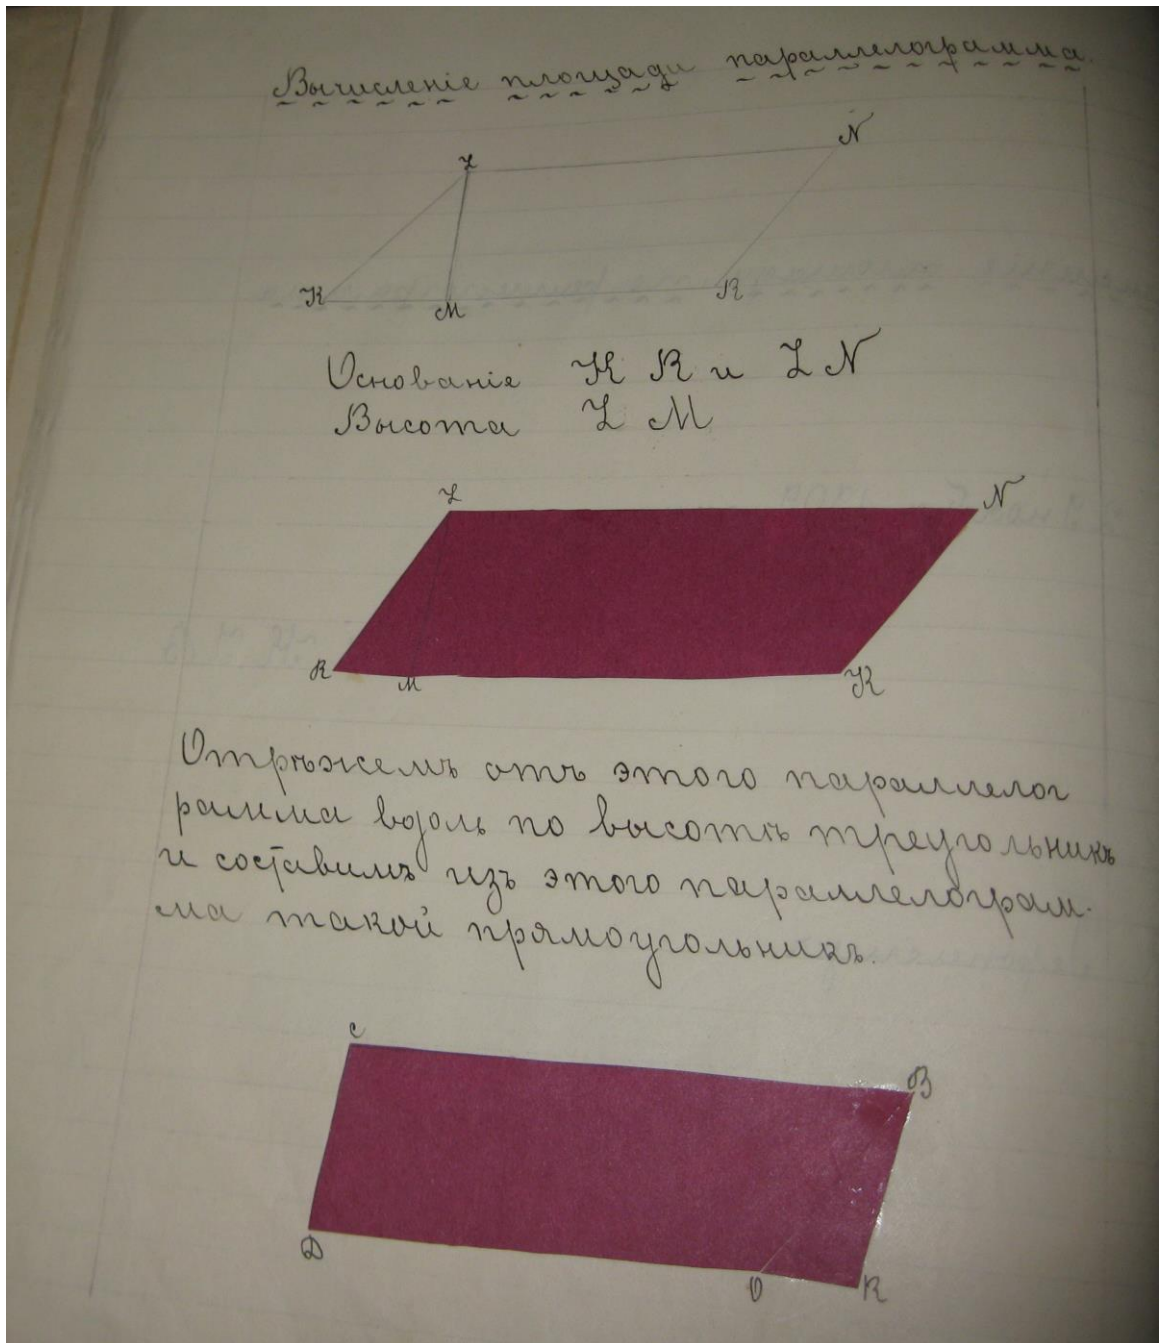 Вычисленіе площади параллелограмма.
Z N
К М R
Основаніе К R и Z N
Высота Z М
Z N
R М К
Отрѣжемъ отъ этого параллелог
рамма вдоль по высотѣ треугольникъ
и составимъ изъ этого параллелограм-
ма такой прямоугольникъ.
С
В
D
О R